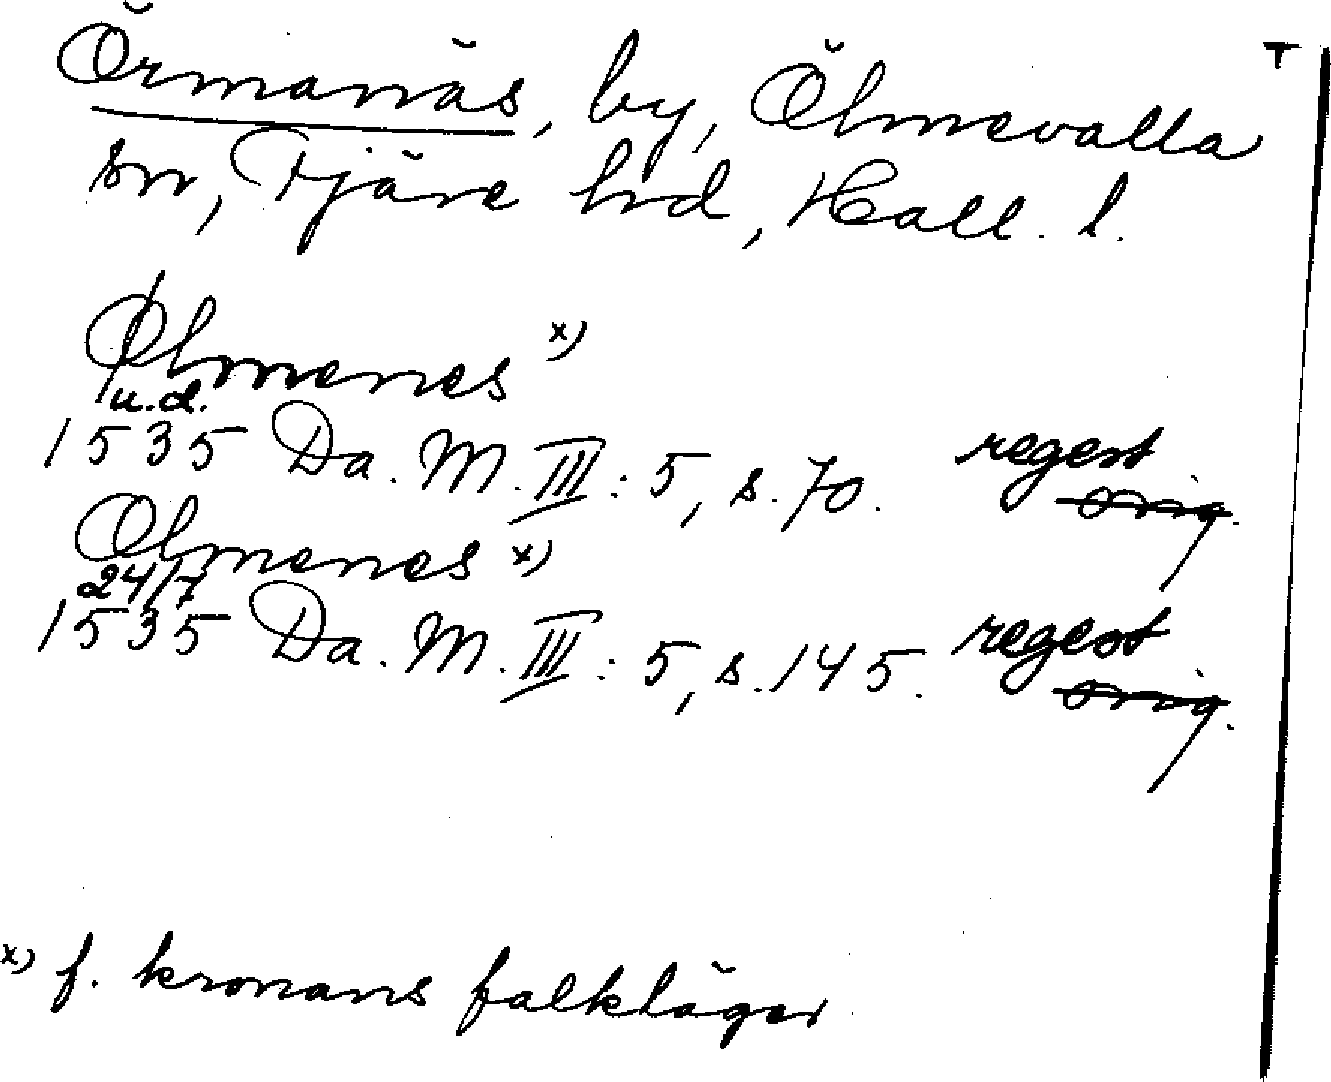 Örmanäs, by, Ölmevalla
sn, Fjäre hd, Hall. l.
Ølmenes x)
u.d.
1535 Da. M. III: 5, s. 70. regest
orig.
Olmenes x)
24/7
1535 Da. M. III: 5, s. 145. regest
orig.
x) f. kronans falkläger